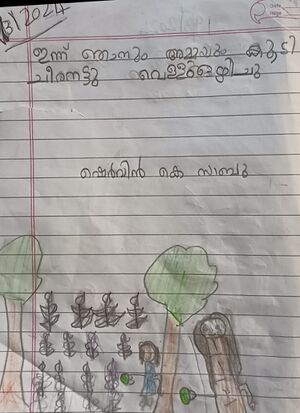 3/2024
ഇന്ന് ഞാനും അമ്മയും കൂടി
ചീരനട്ടു വെള്ളമൊഴിച്ചു
ഷെർവിൻ കെ സാബു